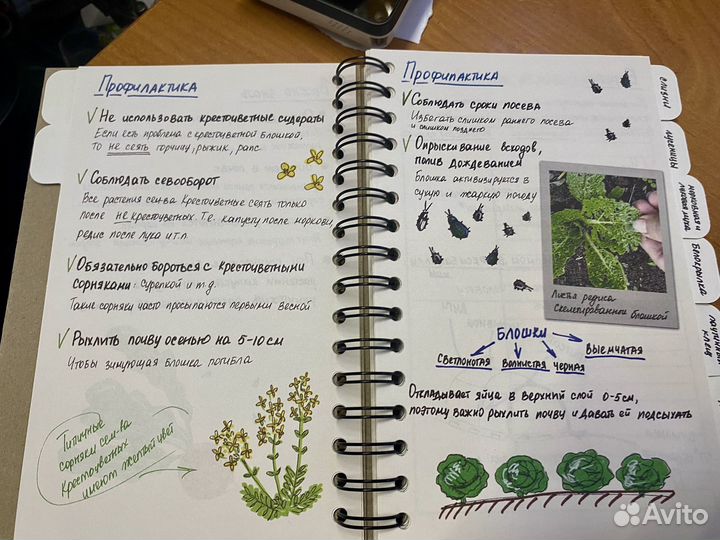 Профилактика
√ Не использовать крестоцветные сидераты
Если есть проблема с крестоцветной блошкой.
То не сеять горчицу, рыжик, рапс
√ Соблюдать севооборот
Все растения сем-ва Крестоцветные сеять только
после не крестоцветных. Т.е. капусту после моркови,
редис после лука и т.п.
√ Обязательно бороться с крестоцветными
сорняками: сурепкой и т.д.
Такие сорняки часто просыпаются первыми весной
√ Рыхлить почву осенью на 5-10 см
Чтобы зимующая блошка погибла
Типичные
сорняки сем-ва
крестоцветных
имеют желтый цвет
Профилактика
√ Соблюдать сроки посева
Избегать слишком раннего посева
и слишком позднего
√ Опрыскивание всходов,
полив дождеванием
Блошка активизируется в
сухую и жаркую погоду
Листья редиса
Скелетированные блошкой
Блошки
Светлоногая
Волнистая
Черная
Выемчатая
Откладывает яйца в верхний слой 0-5см,
поэтому важно рыхлить почву и давать ей подсыхать
слизни
гусеницы
луковая муха
Белокрылка
клещ
Avito